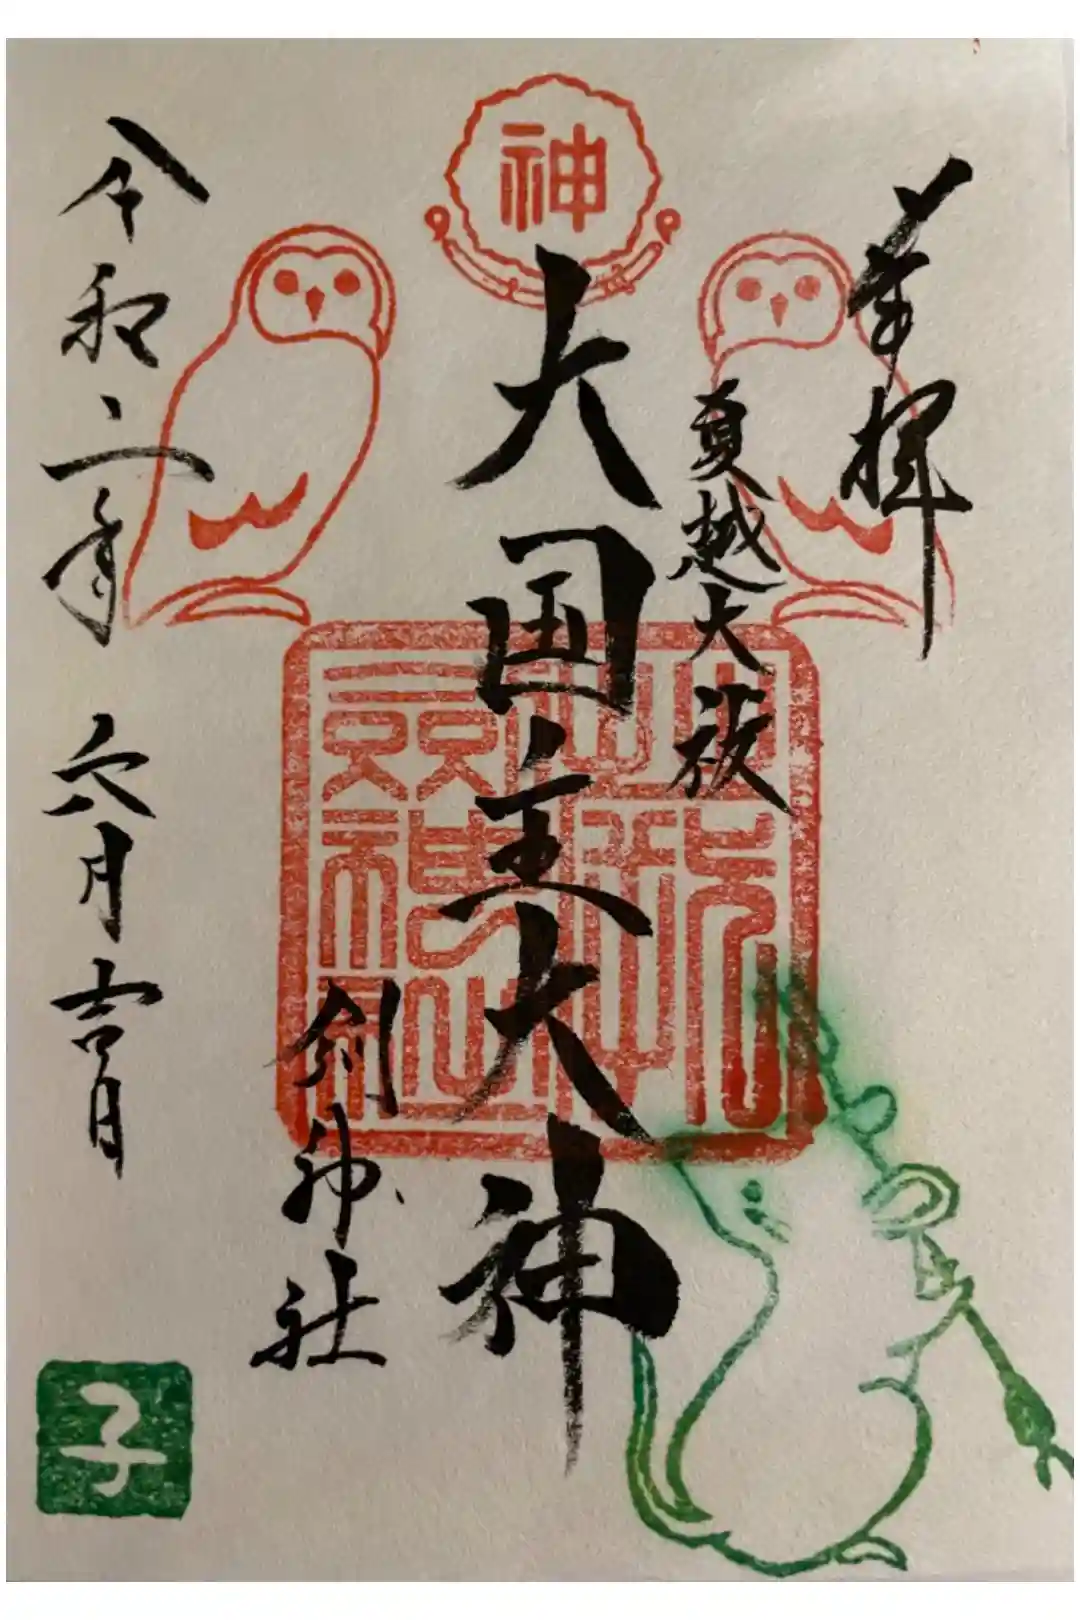 奉拝
夏越大祓
神
大国主大神
劔神社
令和二年 六月 吉日
子